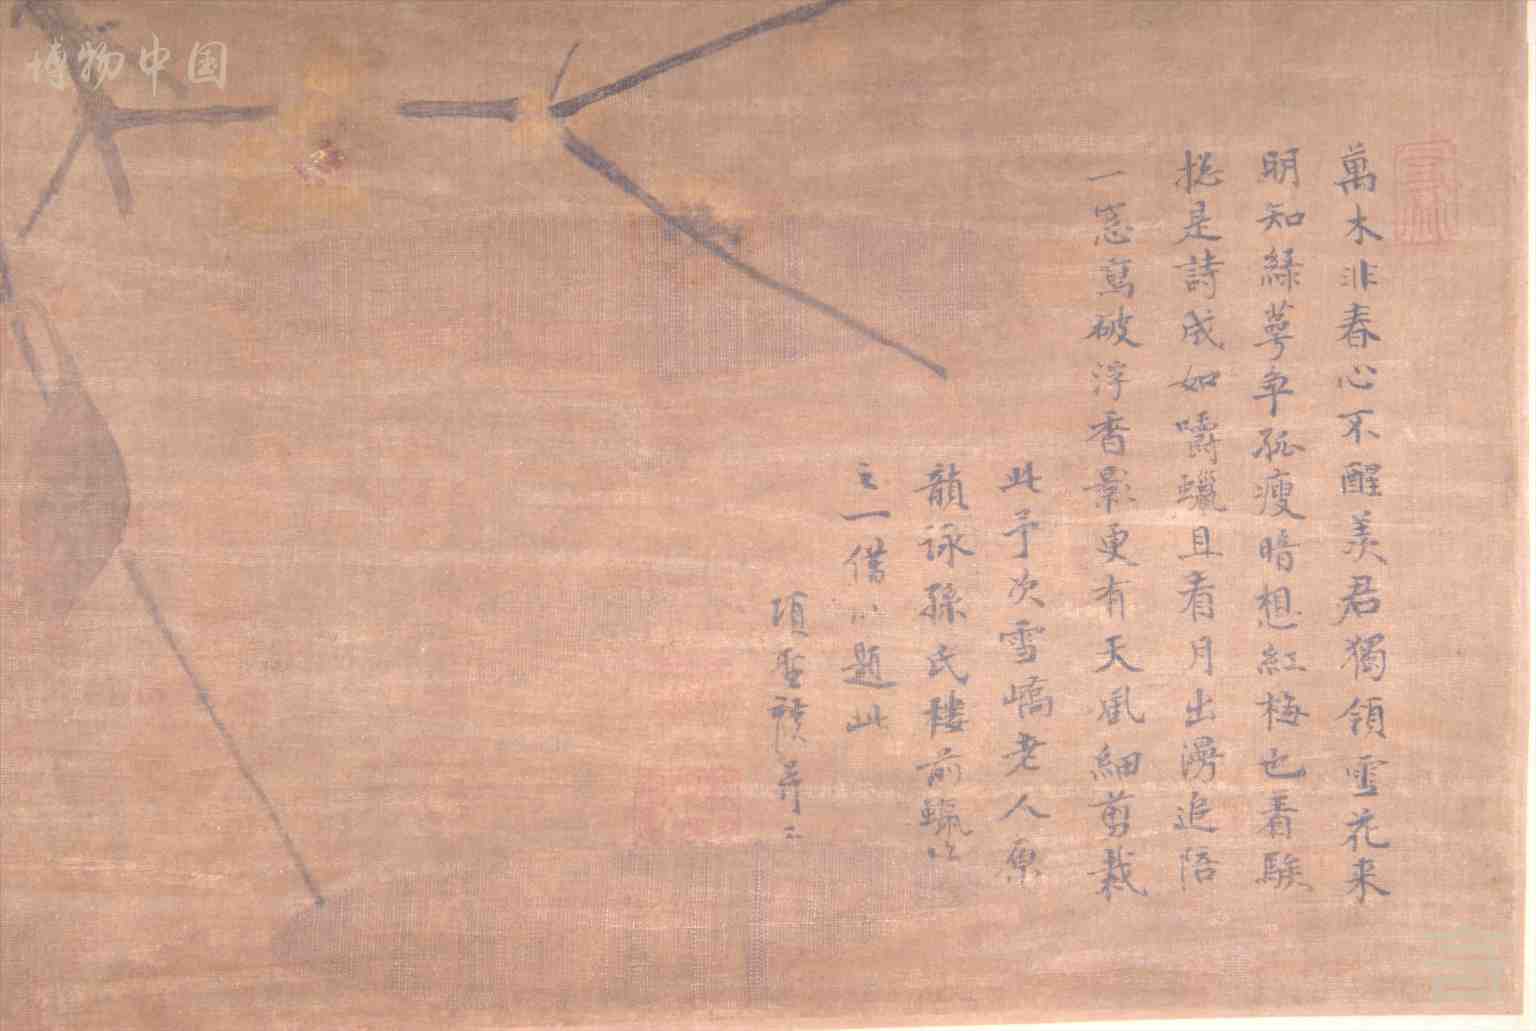 萬木非春心不醒羨君獨領雪花来
明知綠萼爭孤瘦暗想紅梅也着騃
揔是詩成如嚼蠟且看月出漫追陪
一窓寫破浮香影更有天風細剪裁
此予次雪嶠老人原
韻詠孫氏樓前蠟
之一借以題此
項聖謨并
博物中国